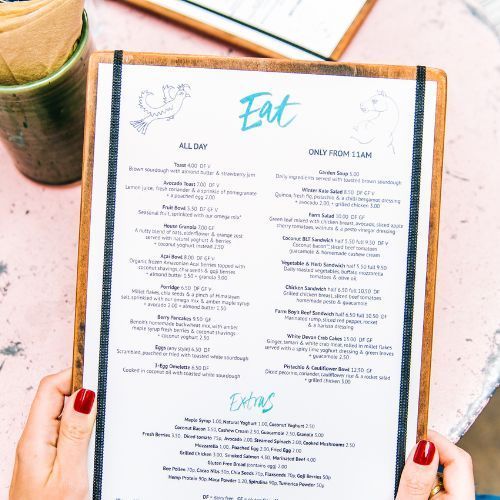 Eat
ALL DAY
Toast 4.00 DF V
Brown sourdough with almond butter & strawberry jam
Avocado Toast 7.00 DF V
Lemon juice, fresh coriander & a sprinkle of pomegranate
+ poached egg 2.00
Fruit Bowl 5.50 DF GF V
Seasonal fruit, sprinkled with our omega mix*
House Granola 7.00 GF
A nutty blend of oats, elderflower & orange zest
served with natural yoghurt & berries
+ coconut yoghurt instead 2.50
Acai Bowl 8.00 DF V
Organic frozen Amazonian Acai berries topped with
coconut shavings, chia seeds & goji berries
+ almond butter 1.50 + granola 3.00
Porridge 6.50 DF GF
Millet flakes, chia seeds & a pinch of Himalayan
salt, sprinkled with our omega mix* & amber maple syrup
+ avocado 2.00 + almond butter 1.50
Berry Pancakes 9.50 GF
Benoit's homemade buckwheat mix with amber
maple syrup fresh berries & coconut shavings
+ coconut yoghurt 2.50
Eggs (any style) 6.50 DF
Scrambled, poached or fried with toasted white sourdough
3-Egg Omelette 6.50 DF
Cooked in coconut oil with toasted white sourdough
ONLY FROM 11AM
Garden Soup 5.00
Daily ingredients served with toasted brown sourdough
Winter Kale Salad 8.50 DF V
Quinoa, fresh fig, pistachio, & a chilli bergamot dressing
+ avocado 2.00, + grilled chicken 3.00
Farm Salad 10.00 GF
Green leaf mixed with chicken breast, avocado, sliced apple
cherry tomatoes, walnuts & a pesto vinegar dressing
Coconut BLT Sandwich half 5.50 full 9.50 DF V
Coconut bacon, sliced beef tomatoes
guacamole & homemade cashew cream
Vegetable & Herb Sandwich half 5.50 full 9.50
Daily roasted vegetables, buffalo mozzarella
tomatoes & olive oil
Chicken Sandwich half 6.50 full 10.50 DF
Grilled chicken breast, sliced beef tomatoes
homemade pesto & guacamole
Farm Boy's Beef Sandwich half 6.50 full 10.50 DF
Marinated rump, sliced red pepper, rocket
& a harissa dressing
White Devon Crab Cakes 15.00 DF GF
Ginger, lemon & white crab meat, rolled in millet flakes
served with a spicy lime yoghurt dressing & green leaves
+ guacamole 2.50
Pistachio & Cauliflower Bowl 12.50 GF
Diced pecorino, coriander, cauliflower rice & a rocket salad
+ grilled chicken 3.00
Extras
Maple Syrup 1.00, Natural Yoghurt 1.00, Coconut Yoghurt 2.50
Coconut Bacon 2.50, Cashew Cream 2.50, Guacamole 2.50, Granola 3.00
Fresh Berries 3.00, Diced tomato .75p, Avocado 2.00, Steamed Spinach 2.00, Cooked Mushrooms 2.50
Mozzarella 1.00, Poached Egg 2.00, Fried Egg 2.00
Grilled Chicken 3.00, Smoked Salmon 4.50, Marinated Beef 4.00
Gluten Free Bread (contains egg) 2.00
Bee Pollen 75p, Cacao Nibs 50p, Chia Seeds 75p, Flaxseeds 75p, Goji Berries 50p
Hemp Protein 90p, Maca Powder 1.20, Spirulina 90p, Tumeric Powder 50p
DF = dairy free